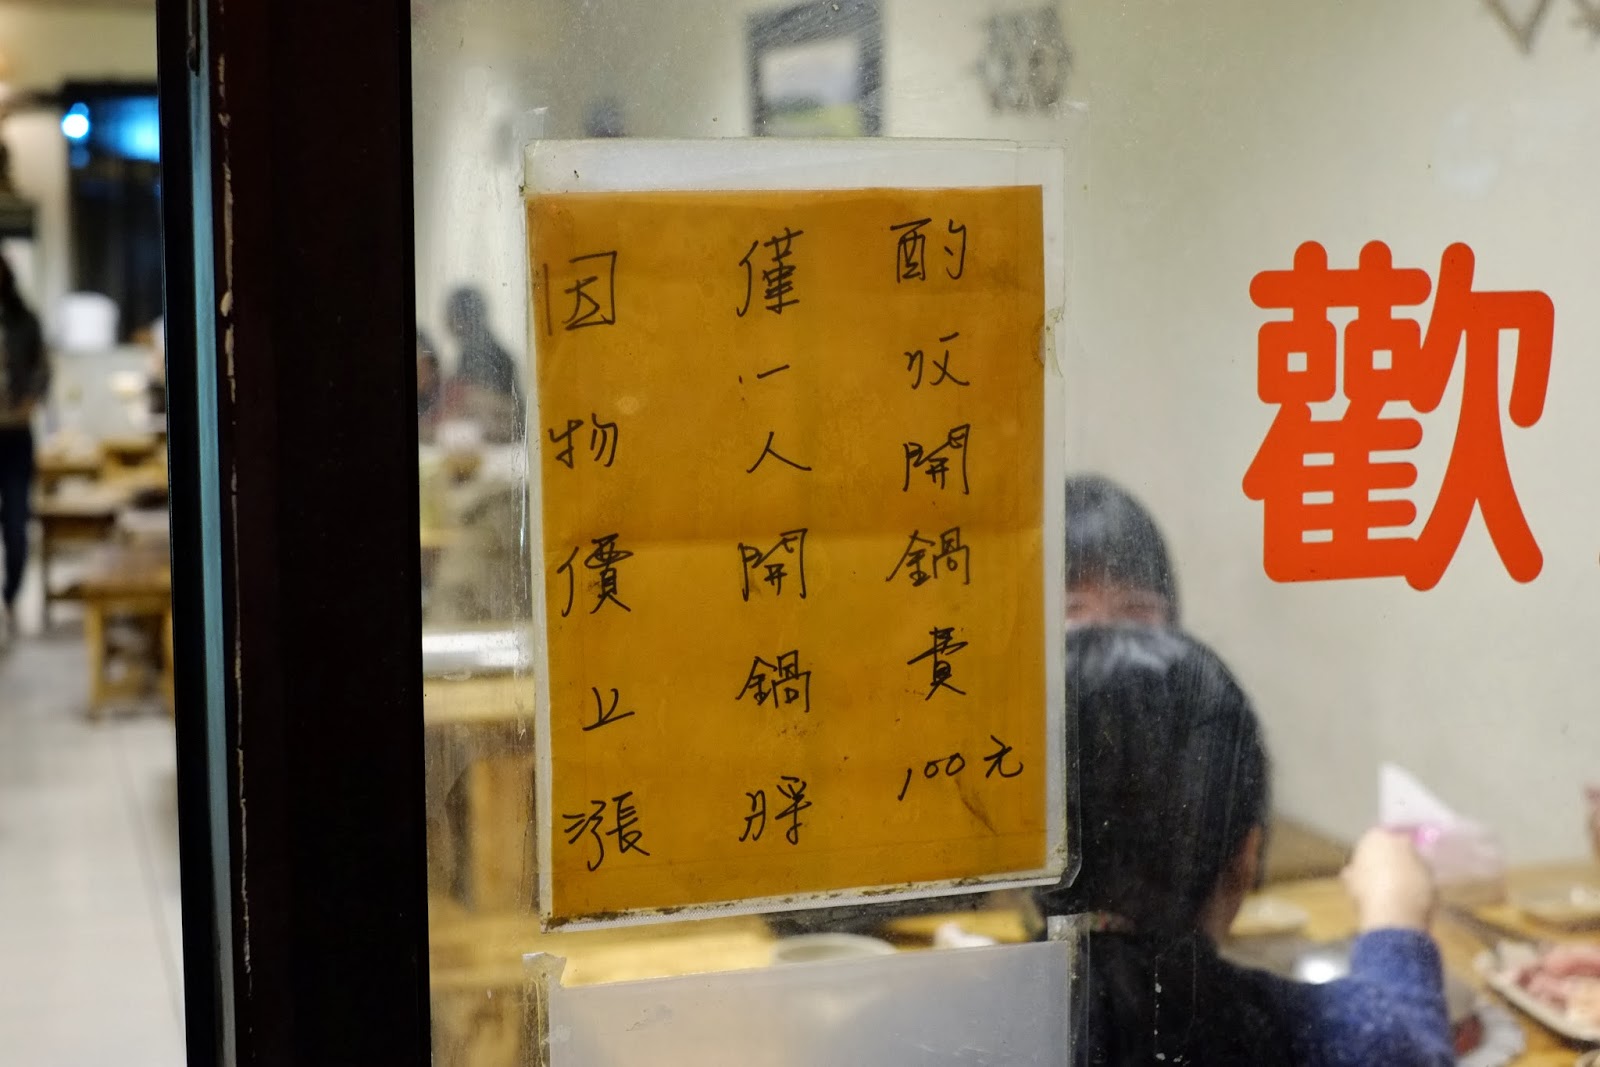 因物價上漲
僅一人開鍋時
酌收開鍋費100元
歡